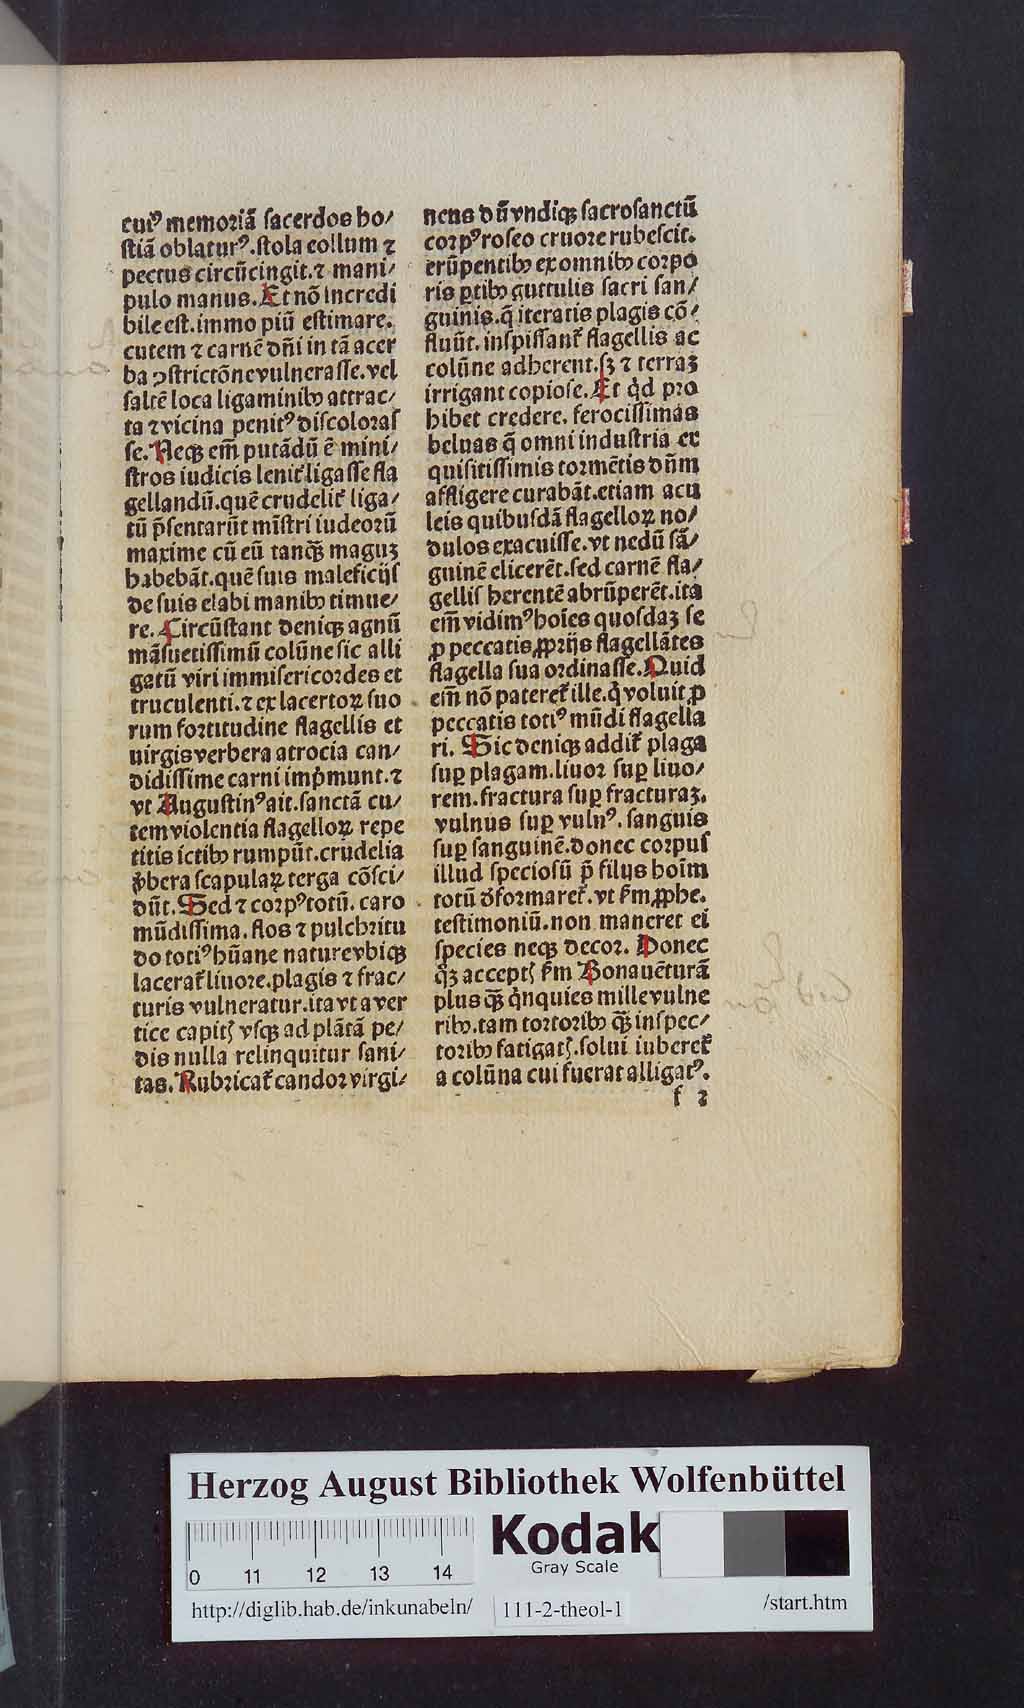 cuiꝰ memoriā ſacerdos ho⸗
ſtiā oblaturꝰ.ſtola collum ⁊
pectus circūcingit.⁊ mani⸗
pulo manus. Et nō incredi
bile eſt.immo piū eſtimare.
cutem ⁊ carnē dn̄i in tā acer
ba ꝯſtrictōne vulneraſſe.vel
ſaltē loca ligaminibꝫ attrac⸗
ta ⁊ vicina penitꝰ diſcoloraſ
ſe. Neqꝫ em̄ putādū ē mini⸗
ſtros iudicis lenit̄ ligaſſe fla
gellandū.quē crudelit̄ liga⸗
tū p̄ſentarūt mīſtri iudeorū
maxime cū eū tanqꝫ̄ maguꝫ
habebāt.quē ſuis maleficijſ
de ſuis elabi manibꝫ timue⸗
re. Circūſtant deniqꝫ agnū
māſuetiſſimū colūne ſic alli
gatū viri immiſericordes et
truculenti.⁊ ex lacertoꝝ ſuo
rum fortitudine flagellis et
uirgis verbera atrocia can⸗
didiſſime carni imp̄munt.⁊
vt Auguſtinꝰ ait.ſanctā cu⸗
tem violentia flagelloꝝ repe
titis ictibꝫ rumpūt.crudelia
v̄bera ſcapulaꝝ terga cōſci⸗
dūt. Sed ⁊ corpꝰ totū. caro
mūdiſſima. flos ⁊ pulchritu
do totiꝰ hūane nature vbiqꝫ
lacerat̄ liuore.plagis ⁊ frac⸗
turis vulneratur.ita vt a ver
tice capitꝭ vſqꝫ ad plātā pe⸗
dis nulla relinquitur ſani⸗
tas. Rubricat̄ candor virgi⸗
neus dū vndiqꝫ ſacroſanctū
corpꝰ roſeo cruore rubeſcit.
erūpentibꝫ ex omnibꝫ corpo
ris ꝑtibꝫ guttulis ſacri ſan⸗
guinis.q̄ iteratis plagis cō⸗
fluūt. inſpiſſant̄ flagellis ac
colūne adherent.ſꝫ ⁊ terraꝫ
irrigant copioſe. Et qͥd pro
hibet credere. ferociſſimas
beluas q̄ omni induſtria ex
quiſitiſſimis tormētis dn̄m
affligere curabāt.etiam acu
leis quibuſdā flagelloꝝ no⸗
dulos exacuiſſe.vt nedū ſā⸗
guinē elicerēt.ſed carnē fla⸗
gelliſ herentē abrūperēt.ita
em̄ vidimꝰ hoīes quoſdaꝫ ſe
ꝓ peccatis ꝓprijs flagellātes
flagella ſua ordinaſſe. Quid
em̄ nō pateret̄ ille.qͥ voluit ꝓ
peccatis totiꝰ mūdi flagella
ri. Sic deniqꝫ addit̄ plaga
ſuꝑ plagam.liuor ſuꝑ liuo⸗
rem.fractura ſuꝑ fracturaꝫ.
vulnus ſuꝑ vulnꝰ. ſanguis
ſuꝑ ſanguinē.donec corpuſ
illud ſpecioſū p̄ filijs hoīm
totū d̄formaret̄. vt ẜm ꝓphe.
teſtimoniū.non maneret ei
ſpecies neqꝫ decor. Donec
qͥꝫ acceptꝭ ẜm Bonauēturā
plus qꝫ̄ qͥnquies mille vulne
ribꝫ.tam tortoribꝫ qꝫ̄ inſpec⸗
toribꝫ fatigatꝭ.ſolui iuberet̄
a colūna cui fuerat alligatꝰ.
f 2
Herzog August Bibliothek Wolfenbüttel
0 11 12 13 14
Kodak
Gray Scale
http://diglib.hab.de/inkunabeln/ 111-2-theol-1 /start.htm